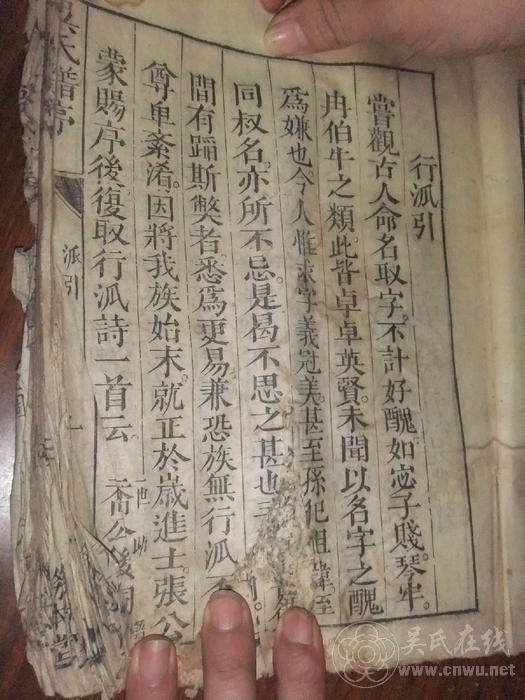 行泒引
嘗觀古人命名取字不計好醜如宓子賤。琴牢。
冉伯牛之類。此皆卓卓英賢。未聞以名字之醜
爲嫌也。今人惟求字義冠美。甚至孫犯祖諱。至
同叔名。亦所不忌。是曷不思之甚也
間有蹈斯獘者。悉爲更易。兼恐族無行泒
尊卑紊淆。因將我族始末。就正於歲進士張公
蒙賜序後。復取行泒詩一首云 喬公後
一世 助
吳氏譜序
派引
吳氏在线
www.cnwu.net